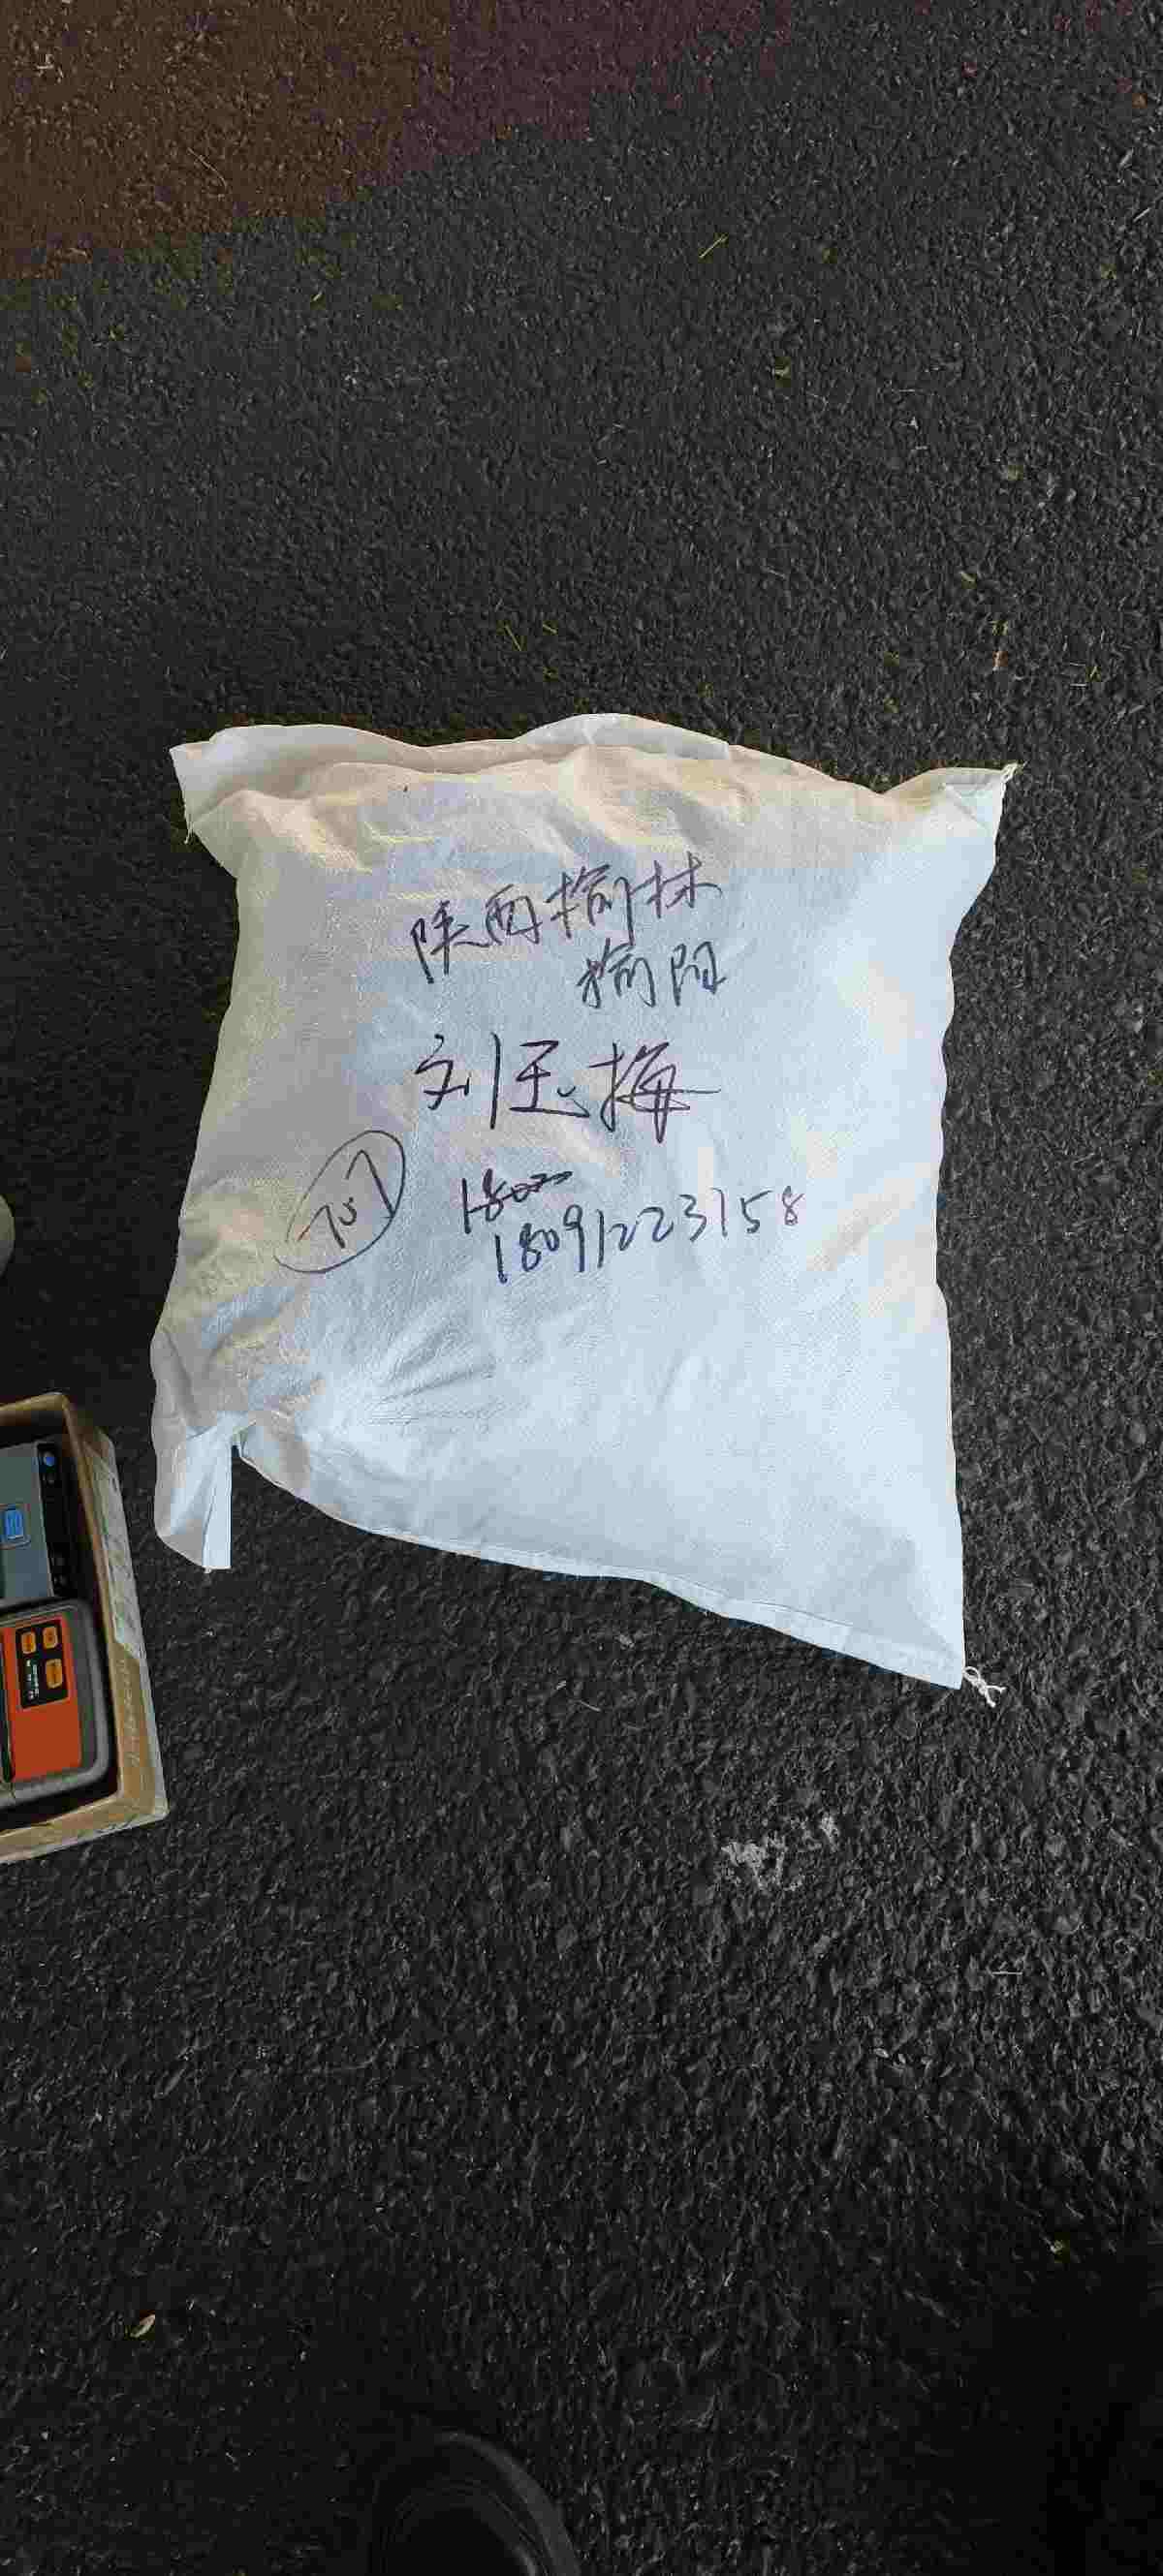 陕西榆林
榆阳
刘玉梅
707
1802
18091223758